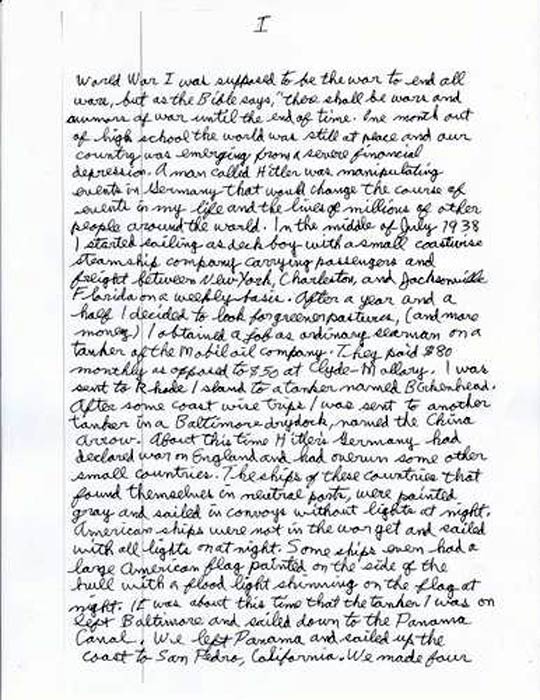 I
World War I was supposed to be the war to end all
wars, but as the Bible says, "there shall be wars and
rumors of war until the end of time. One month out
of high school the world was still at peace and our
country was emerging from a severe financial
depression. A man called Hitler was manipulating
events in Germany that would change the course of
events in my life and the lives of millions of other
people around the world. In the middle of July 1938
I started sailing as deck boy with a small coastwise
steamship company carrying passengers and
freight between New York, Charleston, and Jacksonville
Florida on a weekly basis. After a year and a
half I decided to look for greener pastures, (and more
money) I obtained a job as ordinary seaman on a
tanker of the Mobil oil company. They paid $80
monthly as opposed to $50 at Clyde-Mallory. I was
sent to Rhode Island to a tanker named Birkenhead.
After some coast wise trips I was sent to another
tanker in a Baltimore drydock, named the China
Arrow. About this time Hitler's Germany had
declared war on England and had overun some other
small countries. The ships of these countries that
found themselves in neutral ports, were painted
gray and sailed in convoys without lights at night.
American ships were not in the war yet and sailed
with all lights on at night. Some ships even had a
large American flag painted on the side of the
hull with a flood light shinning on the flag at
night. It was about this time that the tanker I was on
left Baltimore and sailed down to the Panama
Canal. We left Panama and sailed up the
coast to San Pedro, California. We made four